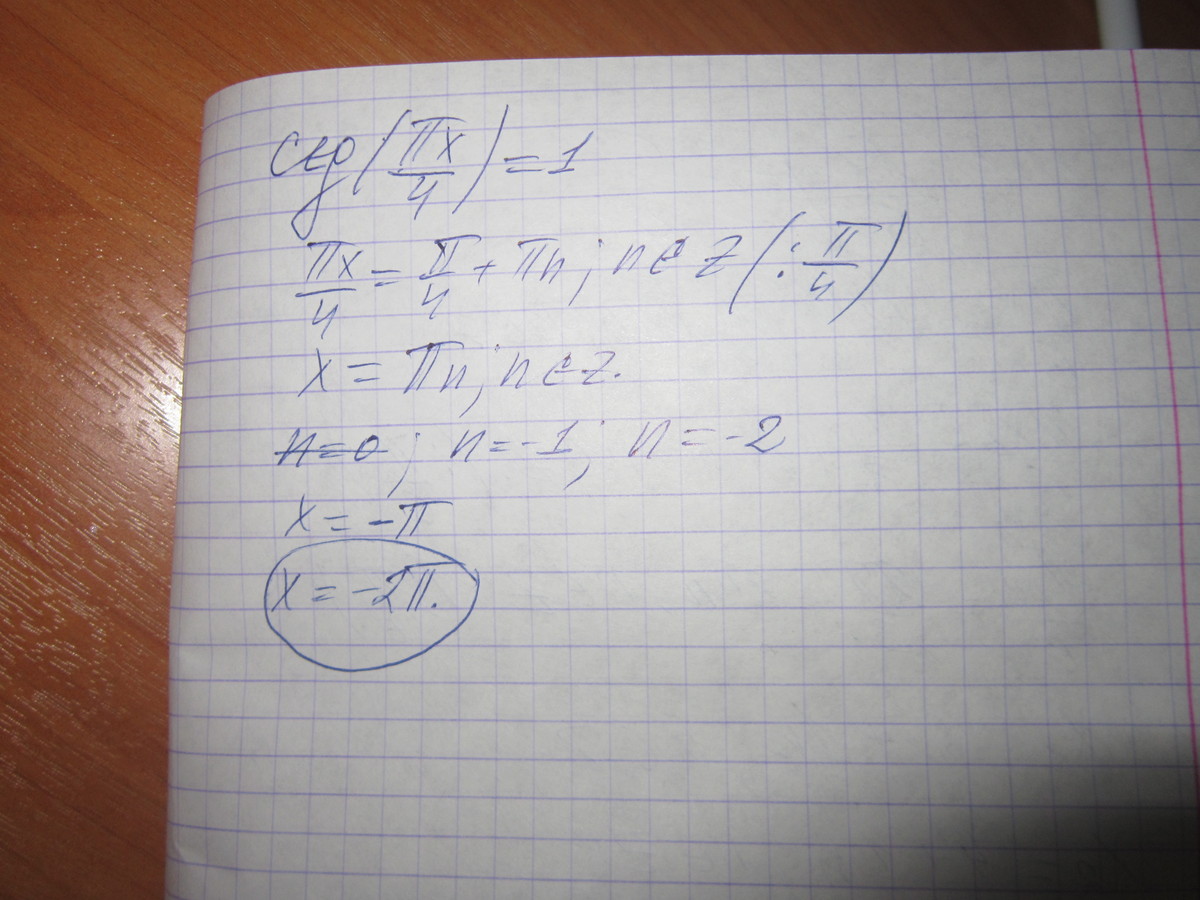 ctg(πx/4) = 1
πx/4 = π/4 + πn; n ∈ z (: π/4)
x = πn; n ∈ z.
n=0; n=-1; n=-2
x = -π
x = -2π.